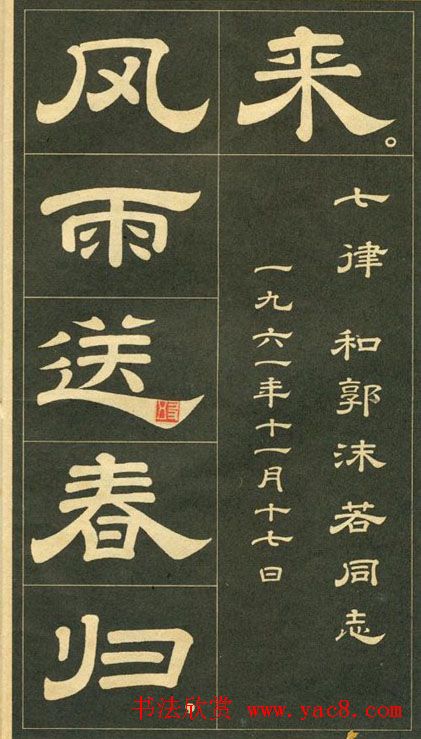 来。
七律 和郭沫若同志
一九六一年十一月十七日
风雨送春归
书法欣赏 www.yac8.com